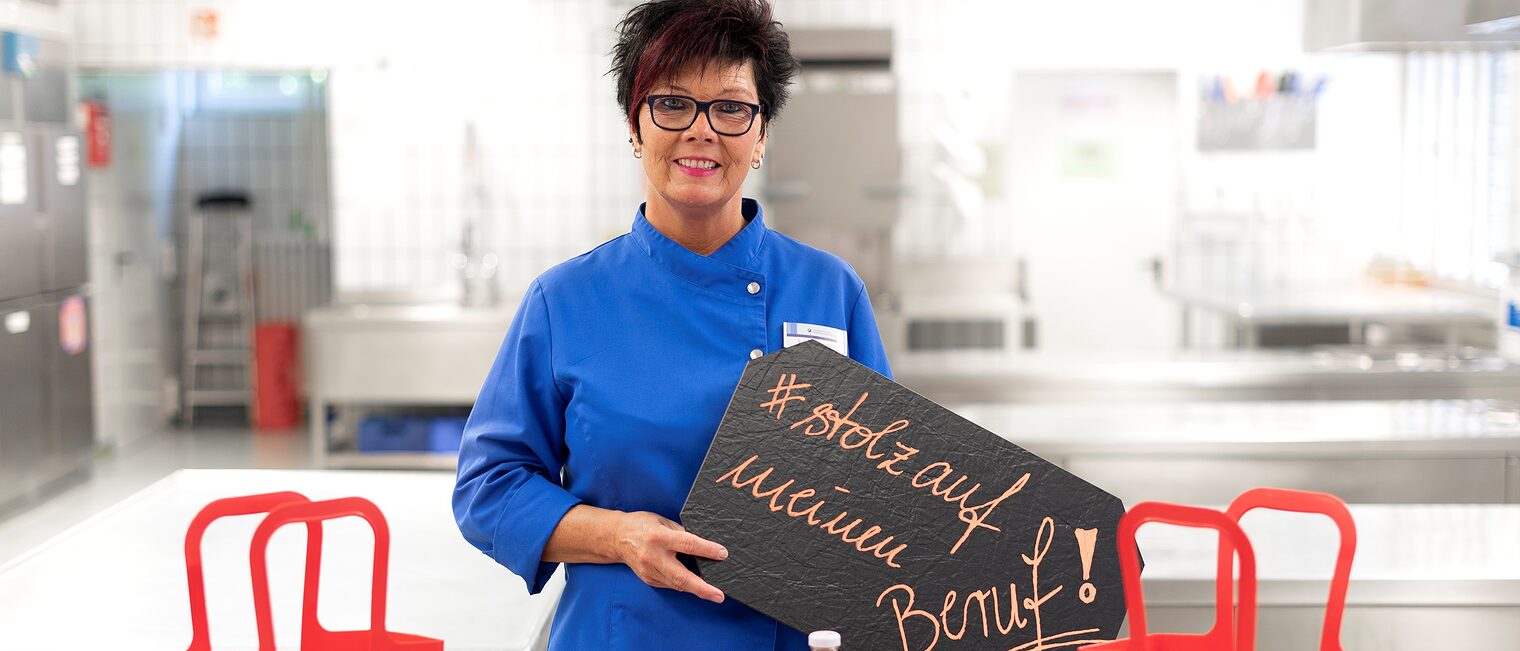 #stolz auf
meinen
Beruf!